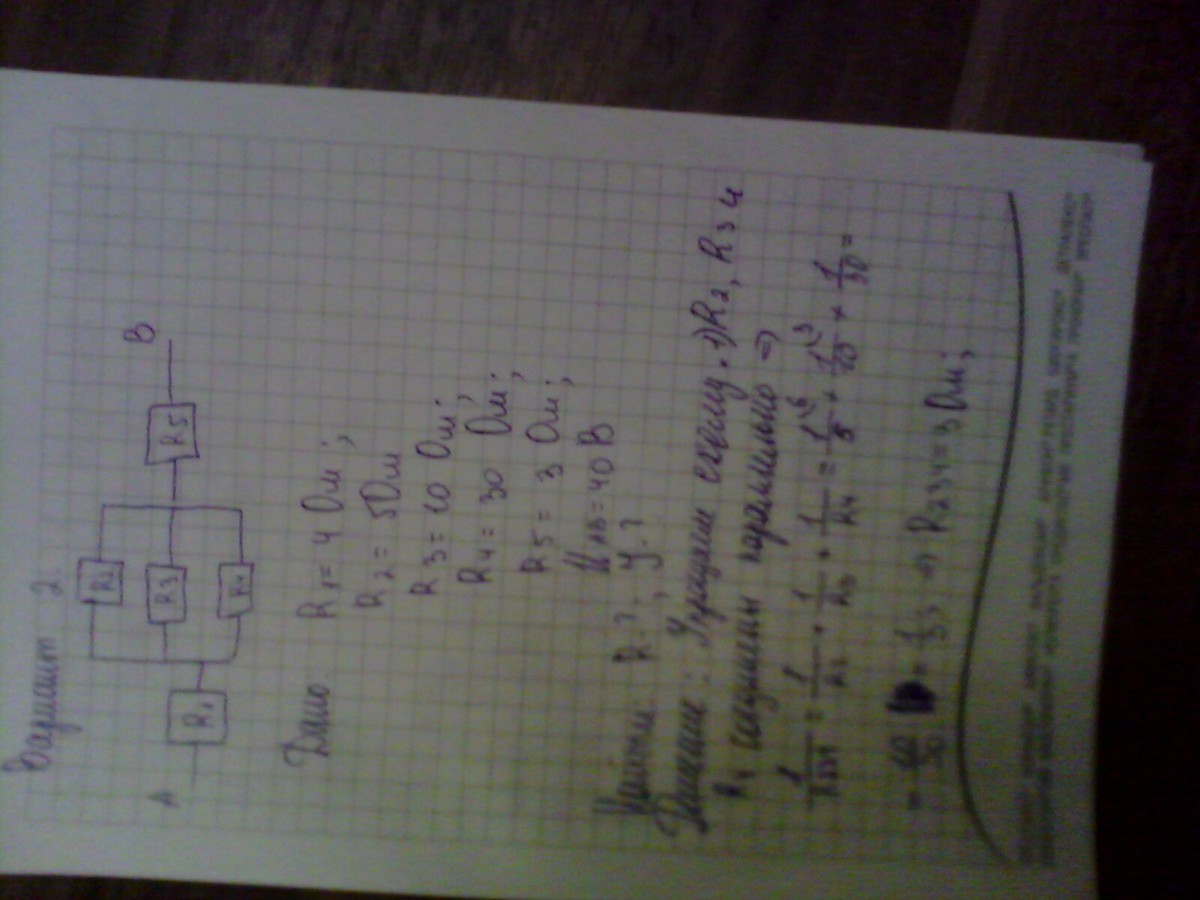 Вариант 2.
A R1 R2 R3 R4 R5 B
Дано R1 = 4 Ом;
R2 = 5 Ом
R3 = 10 Ом;
R4 = 30 Ом;
R5 = 3 Ом;
UAB = 40 В
Найти: R-?, I-?
Решение: Упрощаем схему. 1) R2, R3 и
R4 соединены параллельно ⇒
1/R234 = 1/R2 + 1/R3 + 1/R4 = 1/5 + 1/10 + 1/30 =
= 10/30 = 1/3 ⇒ R234 = 3 Ом;